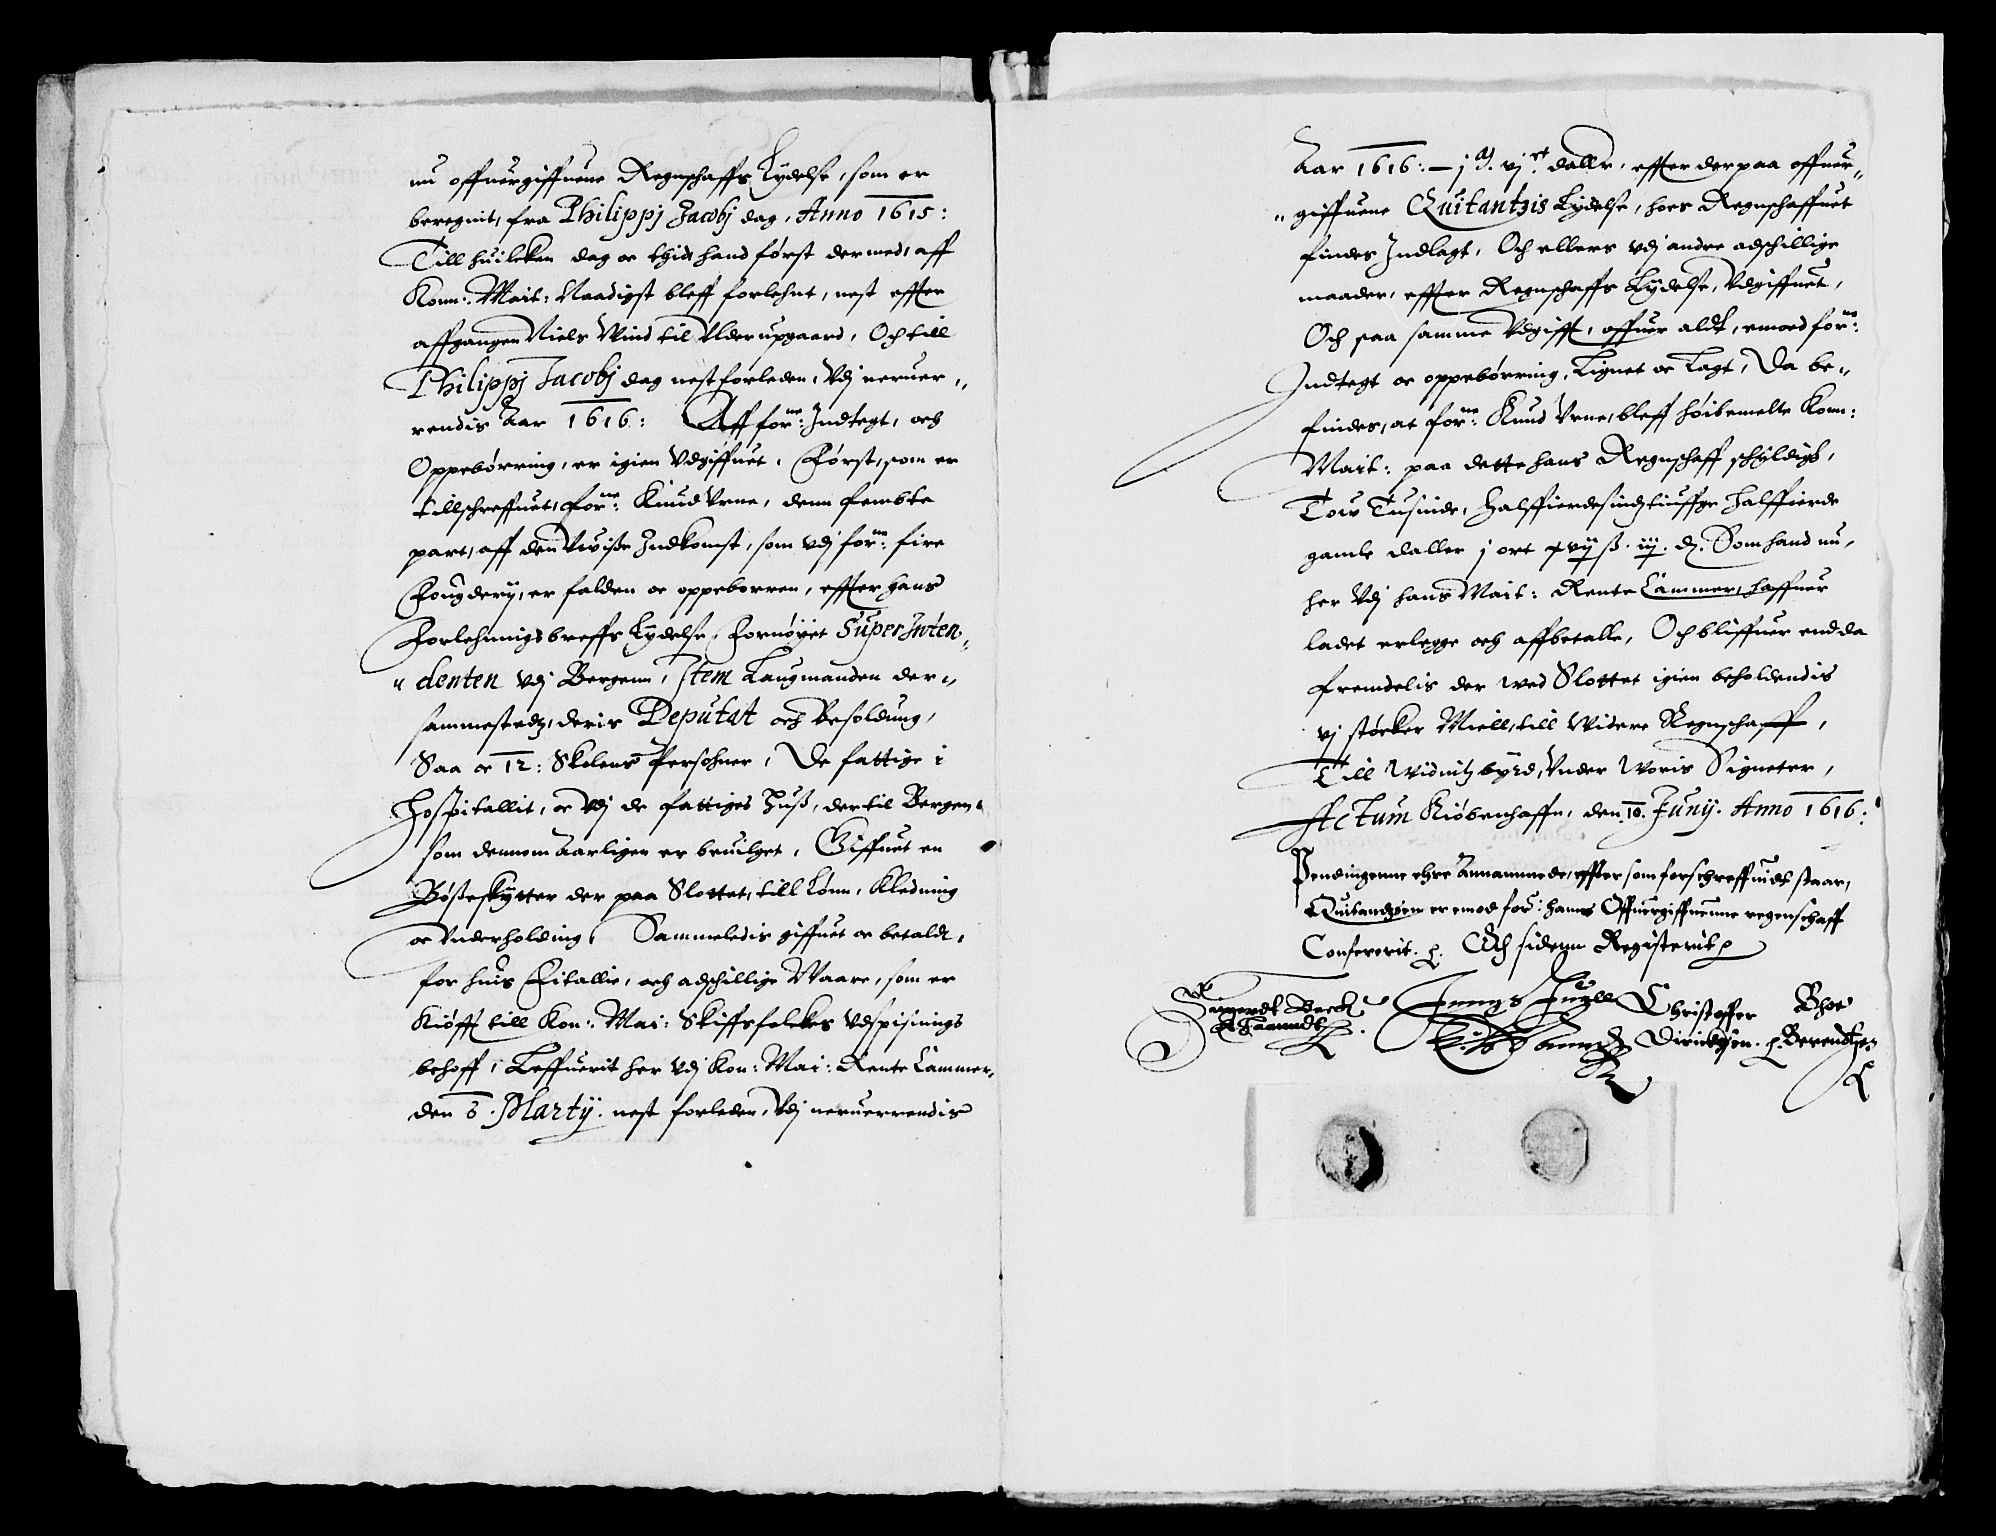 nu offuergiffuene Regnschaffs Lydelse, som er
beregnit, fra Philippj Jacobj dag, Anno 1615:
Till huilcken dag oc thid hand først dermed, aff
Konn: Mait: Naadigst bleff forlehnt, nest effter
affgangen Niels Wind til Ulderupgaard, Och till
Philippj Jacobj dag nest forleden, Vdj neruer„
rendis Aar 1616: Aff forne: Indtegt, och
Oppebørring, er igien Vdgiffuet. Først, som er
tillschreffuet, forne: Knud Vrne, denn fembte
part, aff den Vwisse Indkomst, som vdj forne: fire
Fougderij, er falden oc oppeborren, effter hans
Forlehningsbreffs Lydelse, Fornøyet SuperInten„
„denten vdj Bergenn, Item Laugmanden der„
sammestedz, deris Deputat och Besoldung,
Saa oc 12: Skolens Persohner, De fattige i
Hospitallit, oc Vdj de fattiges Huss, der til Bergen,
som dennom Aarligen er beuilget, Giffuet en
Bøsseskytter der paa Slottet, till Lønn, Kledning
oc Vnderholding, Sammeledis giffuet oc betaldt,
for huis Fitallie, och adschillige Waare, som er
Kiøfft till Kon: Mai: Skiffsfolckes Vdspisnings
behoff, Leffuerit her vdj Kon: Mai: Rente Cammer,
den 6. Martij. nest forleden, Vdj neruerrendis
Aar 1616: – j M. vj ct. dallr, effter derpaa offuer„
„giffuene Quitantzis Lydelse, hoes Regnschaffuet
findes Indlagt, Och ellers vdj andre adschillige
maader, effter Regnschaffs Lydelse, Vdgiffuet,
Och saa samme Vdgifft, offuer aldt, emoed forne:
Indtegt oc oppebørring, Lignet oc Lagt, Da be„
findes, at forne: Knud Vrne, bleff høibemelte Konn:
Mait: paa dette hans Regnschaff schyldigh,
Tow Tusinde, Halffierdesindztiuffge Halffierde
gamle daller j ort xvij ß. iij. d. Som hand nu,
her Vdj hans Mait: Rente Cammer, haffuer
ladet erlegge och affbetalle, Och bliffuer endda
fremdelis der wed Slottet igien beholdendis
vj støcker Miell, till Widere Regnschaff,
Till Widnitzbyrd, Vnder Woris Signeter,
Actum Kiøbenhaffn, den 10. Junij. Anno 1616:
Pendingenne ehre Annammede, effter som forschreffuidt staar,
Quitandtzen er emod for: hanns Offuergiffuenne regenschaff
Confererit. Och sidenn Registerit
Christoffer Bhoe
Dirichsen. Berendtzen